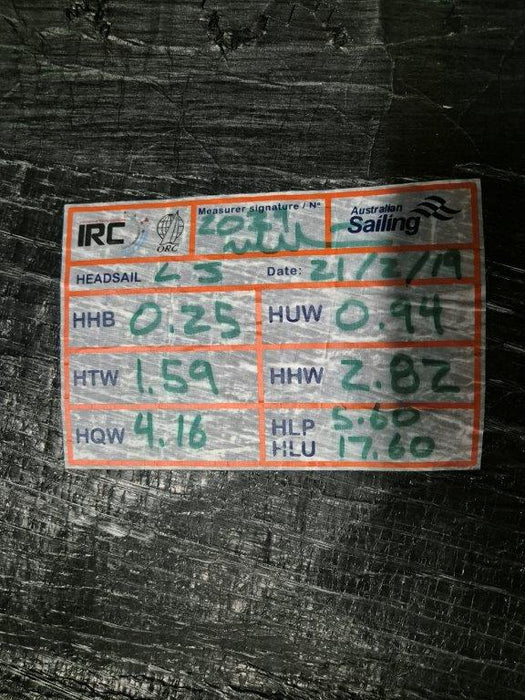 IRC
ORC
Measurer signature / Nº
Australian
Sailing
HEADSAIL L J Date: 21/2/19
HHB 0.25 HUW 0.94
HTW 1.59 HHW 2.82
HQW 4.16 HLP 5.60
HLU 17.60